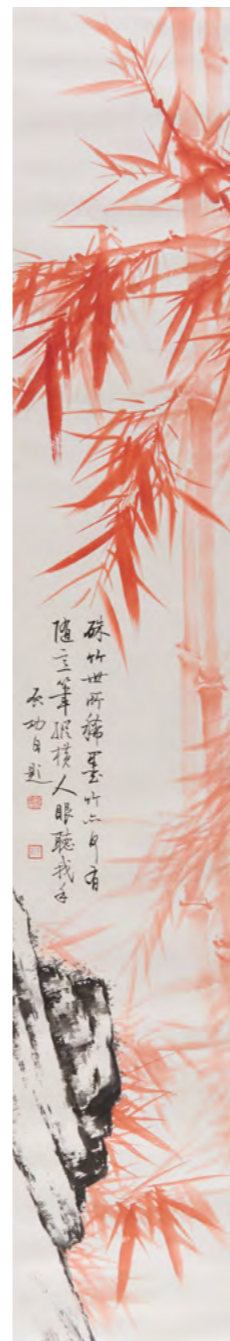 硃竹世所稀墨竹亦有
隨意筆縱橫人眼聽我手
啓功自題